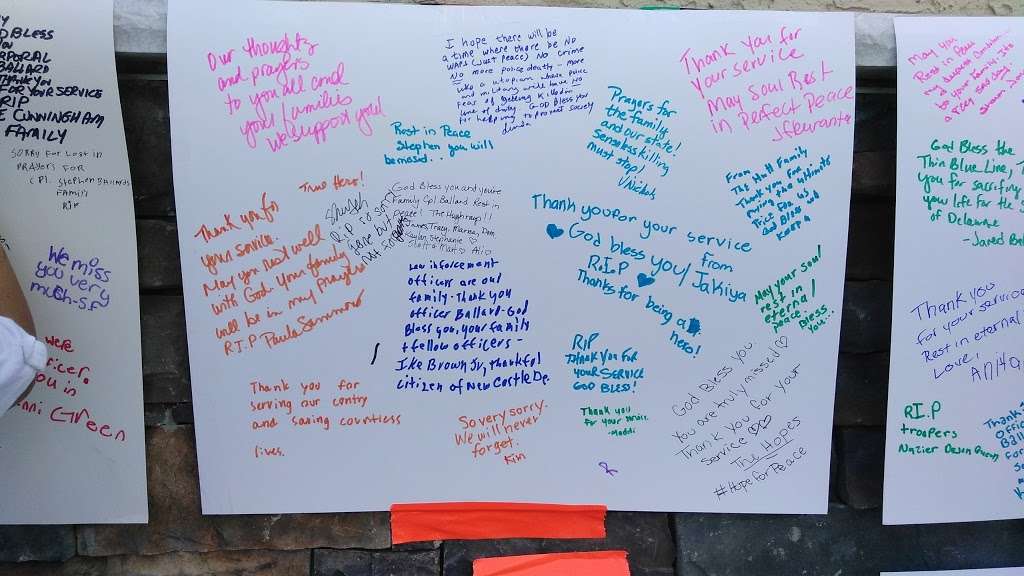 D BLESS
ORPORAL
BALLARD
THANK YOU
FOR YOUR SERVICE
RIP
E CUNNINGHAM
FAMILY
SORRY FOR LOST IN
PRAYERS FOR
CPL. STEPHEN BALLARDS
FAMILY
RIP
We miss
you very
much-S.F
were
ficer.
ou in
Green
Our thoughts
and prayers
to you all and
your families
We support you!
I hope there will be
a time where there be NO
WARS (Just Peace) NO crime
NO more police death - more
like a utopian where police
and military will have NO
fear of getting killed in
line of duty. GOD Bless you
for helping to protect society
Linda
Thank you for
your service
May Soul Rest
in Perfect Peace
Rest in Peace
Stephen you will
be missed...
Prayers for
the family
and our state!
Senseless killing
must stop!
Nichols
From
The Hall Family
Thank you for
paying the ultimate
Price for us
God Bless and
Keep u
True Hero!
Thank you for
your service.
May you rest well
with God. Your family
will be in my prayers
R.I.P Paula Simmons
R.I.P to som
gone but
not forgotten
God Bless you and your
Family Cpl Ballard Rest in
Peace!
James, Tracy, Marina, Dom
Kaylin, Stephanie
Law inforcement
officers are our
family. Thank you
officer Ballard-God
Bless you, your family
+ fellow officers -
Ike Brown Jr, thankful
citizen of New Castle De.
Thank you for your service
God bless you/ from Jakiya
R.I.P
Thanks for being a
hero!
May your soul
rest in
eternal
peace.
Bless
you...
RIP
THANK YOU FOR
YOUR SERVICE
GOD BLESS!
Thank you
for your service.
-Maddi
Thank you for
serving our contry
and saving countless
lives.
So very sorry.
We will never
forget.
Kim
God Bless you.
You are truly missed
Thank you for your
service
The Hopes
#HopeForPeace
May you
Rest in Peace
God Bless the
Thin Blue Line, T
You for sacrificing
your life for the s
of Delaware
-Jared
Thank you
for your service
Rest in eternal
Love,
R.I.P
troopers
Thank
Offic
Balla
for